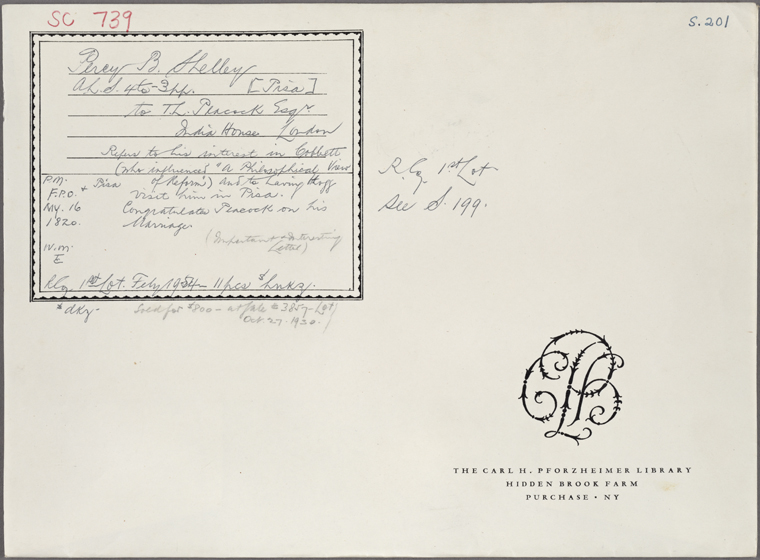 SC 739
S.201
Percy B. Shelley
A.L.S. 4to-3pp. [Pisa]
to T.L. Peacock Esqr.
India House London
Refers to his interest in Cobbett
(who influenced "A Philosophical View
of Reform") and to having Hogg
visit him in Pisa.
Congratulates Peacock on his
Marriage
P.M.
F.P.O. + Pisa
My. 16
1820.
(Important & Interesting
Letter)
W.M.
E
1st Lot. Feby 1954 - 11 pcs
Sold for $800 - at Sale # 3857 - Lot
Oct. 27-1930.
1st Lot
See S. 199.
THE CARL H. PFORZHEIMER LIBRARY
HIDDEN BROOK FARM
PURCHASE • NY